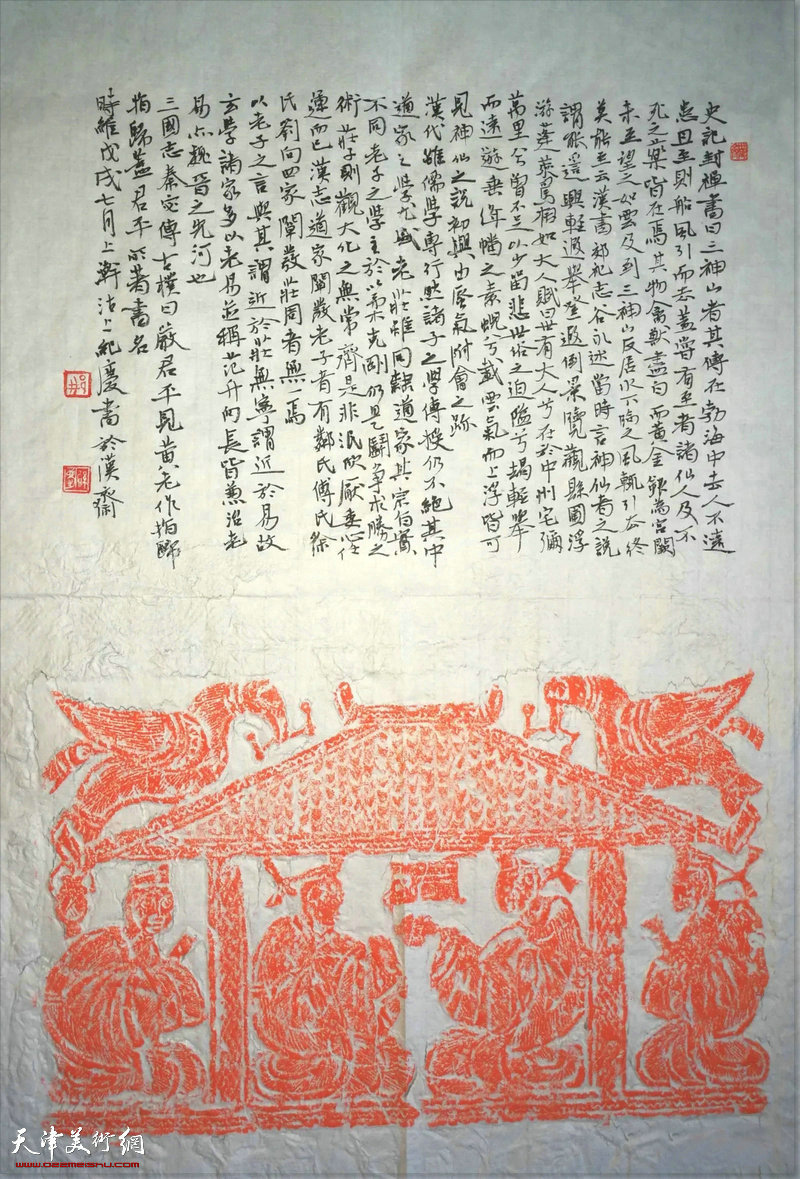 史記封禪書曰三神山者其傳在勃海中去人不遠
患且至則船風引而去蓋嘗有至者諸仙人及不
死之藥皆在焉其物禽獸盡白而黃金銀為宮闕
未至望之如雲及到三神山反居水下臨之風輒引去終
莫能至云漢書郊祀志谷永述當時言神仙者之說
謂能遙興輕遐舉登遐倒景覽觀縣圃浮
游蓬萊馬相如大人賦曰世有大人兮在於中州宅彌
萬里兮曾不足以少留悲世俗之迫隘兮朅輕舉
而遠遊垂絳幡之素蜺兮載雲氣而上浮皆可
見神仙之說初興由唇氣附會之跡
漢代雖儒學專行然諸子之學傳授仍不絕其中
道家之學尤盛老莊雖同隸道家其宗伯實
不同老子之學主於以柔克剛仍是鬬爭求勝之
術莊子則觀大化之無常齊是非泯欣厭委心任
運而已漢志道家闡發老子者有鄰氏傅氏徐
氏劉向四家闡發莊周者無一焉
以老子之言與其謂近於莊無寧謂近於易故
玄學諸家多以老易並稱范升向長皆兼治老
易亦魏晉之先河也
三國志秦宓傳古樸曰嚴君平見黃老作指歸
指歸蓋君平所著書名
時維戊戌七月上澣沽上紀慶書於漢齋
天津美術網
www.022meishu.com